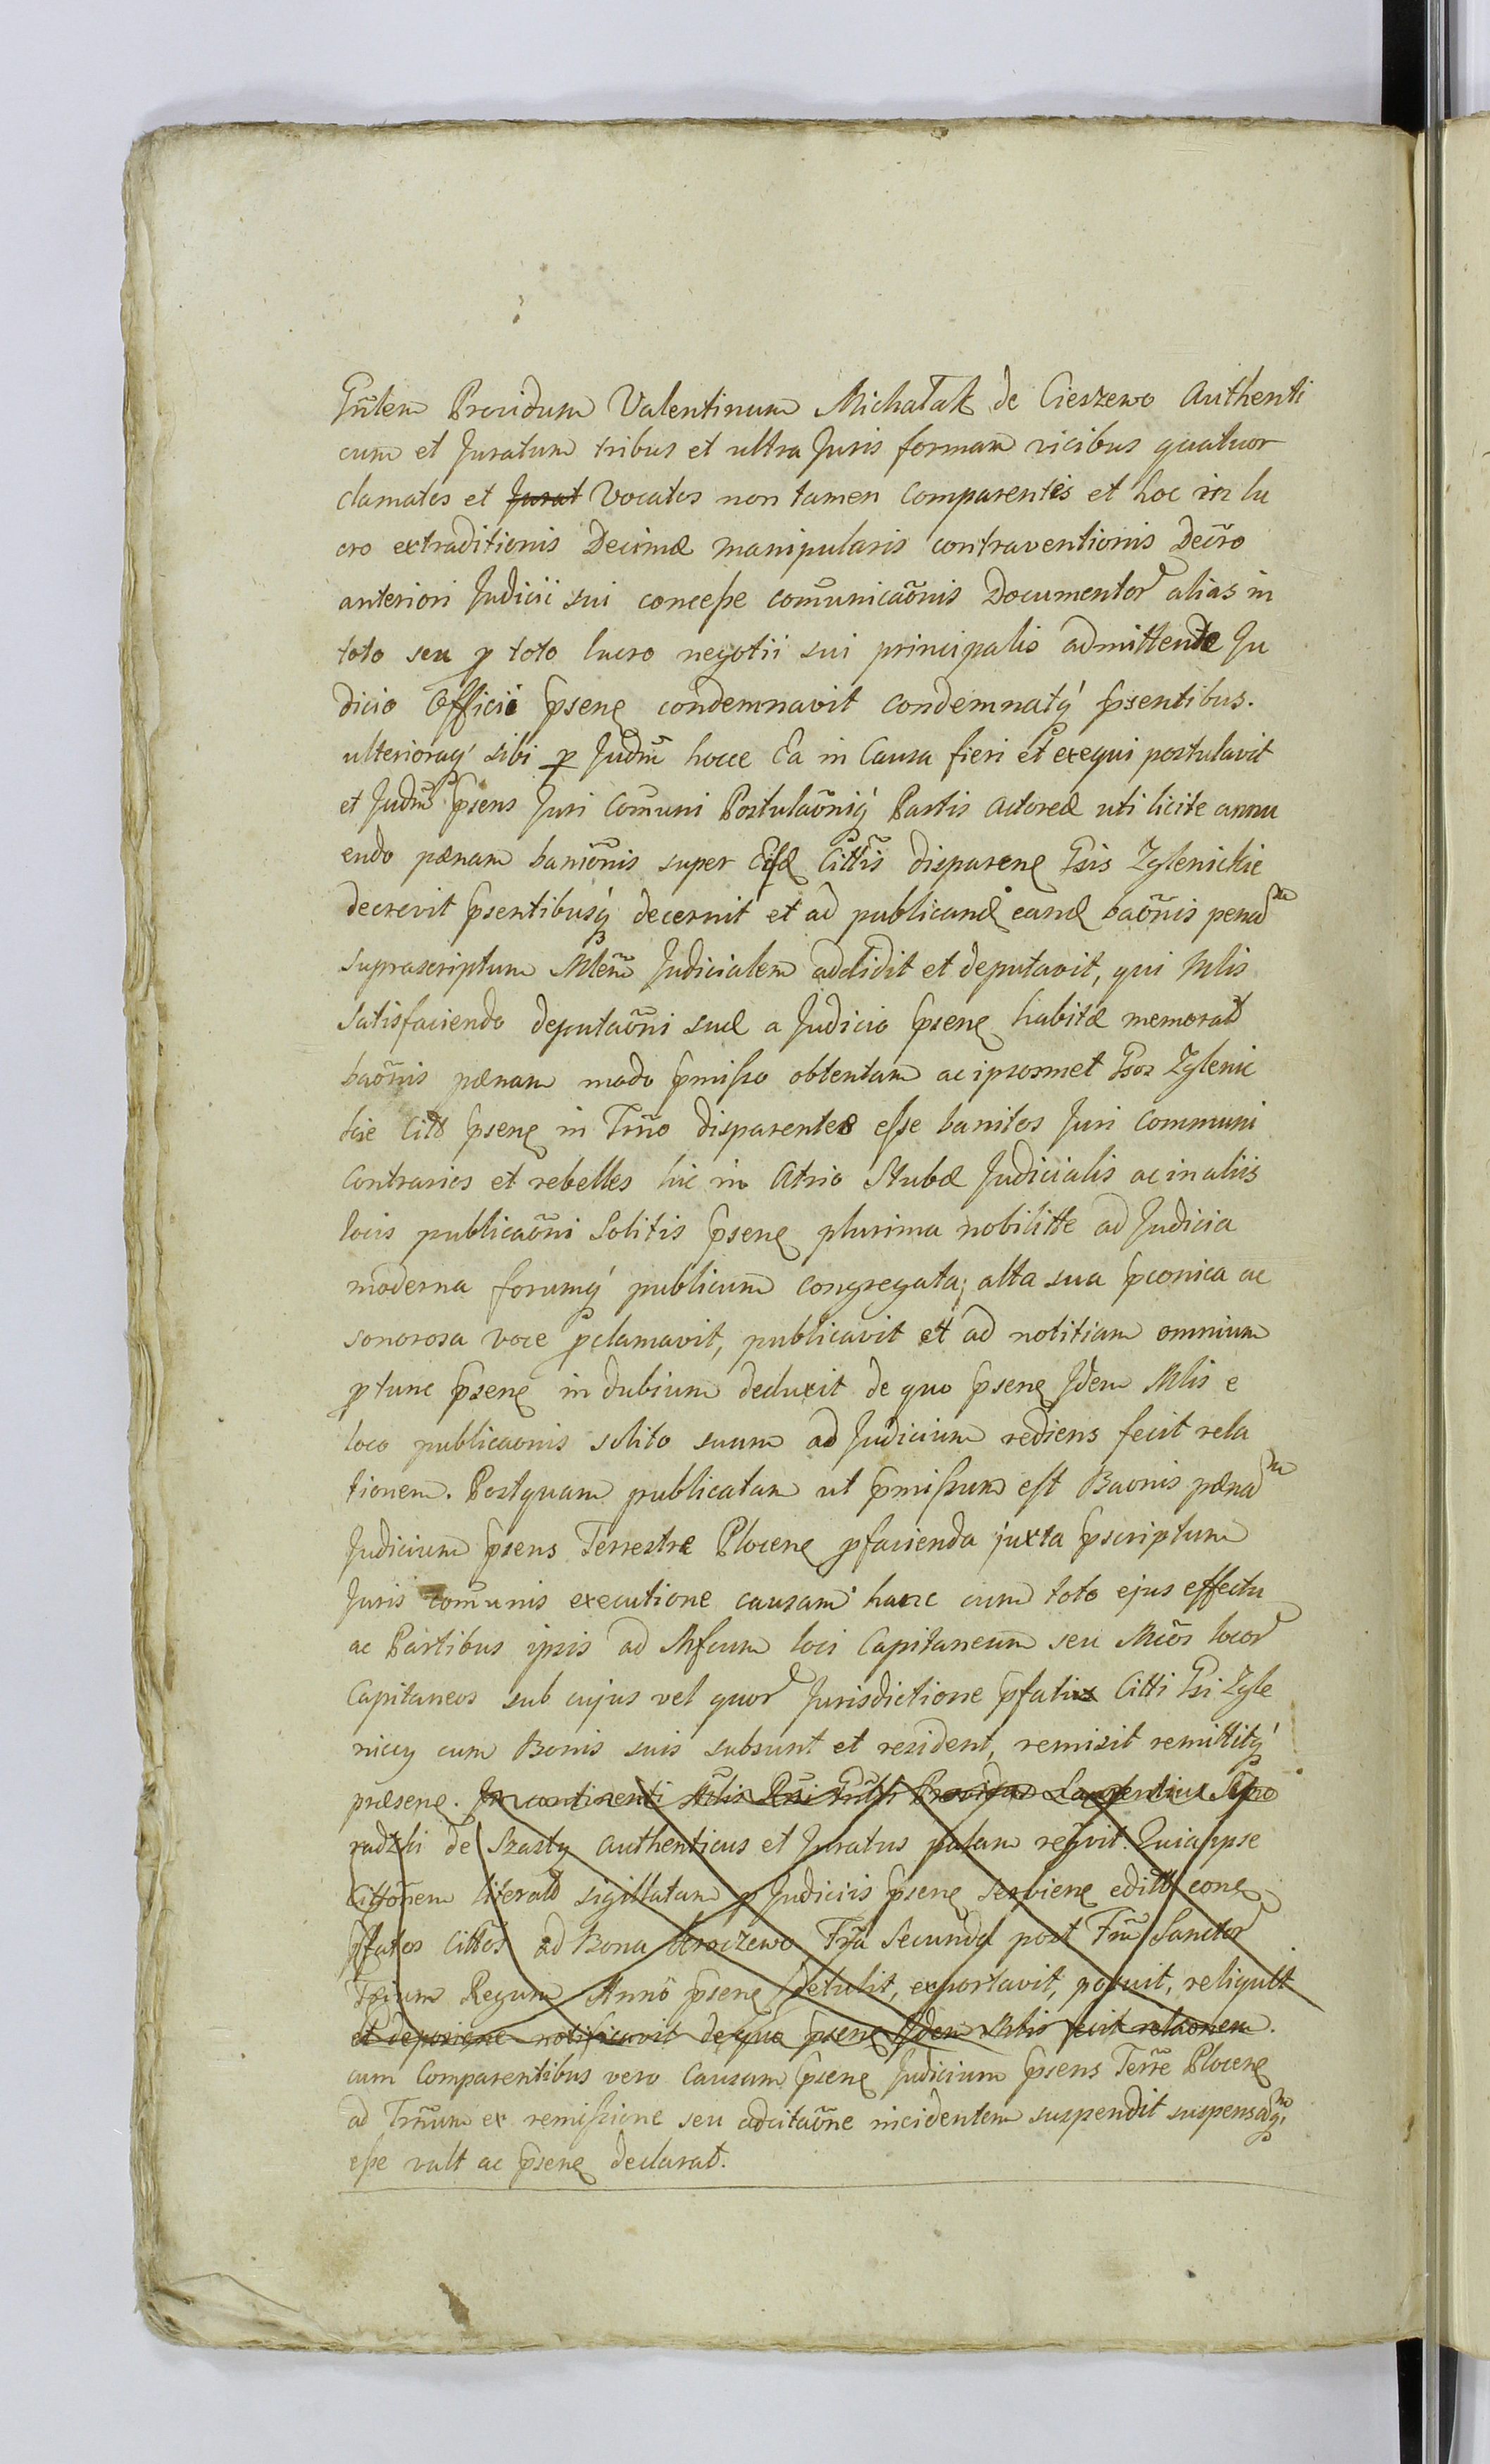 Gnlem Providum Valentinum Michałak de Cieszewo Authenti
cum et Juratum tribus et ultra Juris formam vicibus quatuor
clamatos et Jurat Vocatos non tamen Comparentes et hoc in lu
cro extraditionis Decimæ manipularis contraventionis Decro
anteriori Judicii sui concesse comunicaõnis Documentor alias in
toto seu p toto lucro negotii sui principalis admittente Ju
dicio Officii psene condemnavit condemnatq psentibus.
ulterioraq sibi p Judm hocce Ea in Causa fieri et exequi postulavit
et Judm psens Juri Comuni Postulaõniq Partis Actoreæ uti licite annu
endo pænam baniõnis super Citts disparene Gsis Zglenickie
decrevit psentibusq decernit et ad publicand eand baõnis penam
suprascriptum Mlem Judicialem addidit et deputavit, qui Mlis
Satisfaciendo deputaõni suæ a Judicio psene habitæ memorat
baõnis pænam modo pmisso obtentam ac ipsosmet Gsos Zglenic
kie Citt psene in Trno disparentes esse banitos Juri Communi
Contrarios et rebelles hic in Atrio Stubæ Judicialis ac in aliis
locis publicaõni Solitis psene plurima nobilitte ad Judicia
moderna forumq publicum congregata, alta sua pconica ac
sonorosa voce pclamavit, publicavit et ad notitiam omnium
ptunc psene in dubium deduxit de quo psene Jdem Mlis e
loco publicaonis solito suum ad Judicium rediens fecit rela
tionem. Postquam publicatam ut pmissum est Baonis pænam
Judicium psens Terrestre Plocene pfacienda juxta pscriptum
Juris comunis executione causam hanc cum toto ejus effectu
ac Partibus ipsis ad Mfcum loci Capitaneum seu Mcos locor
Capitaneos sub cujus vel quor Jurisdictione pfati Citti Gsi Zgle
niccy cum Bonis suis subsunt et resident, remisit remittitq
præsene. In continenti Mlis Rni Gnlis Providus Laurentius
radzki de Szasty Authenticus et Juratus palam recgvit. Quia ipse
Cittõnem literat sigillatam p Judiciis psene serviene editt cone
pfatos Cittos ad Bona Obroczewo Fria Secunda post Fm Sanctor
Trium Regum Anno psene detulit, exportavit, posuit, reliquit
et deposiene notificavit de quo psene Jdem Mlis fecit relaonem.
cum Comparentibus vero Causam psene Judicium psens Terre Plocene
ad Trnum ex remissione seu adcitaõne incidentem suspendit suspensamq
esse vult ac psene declarat.